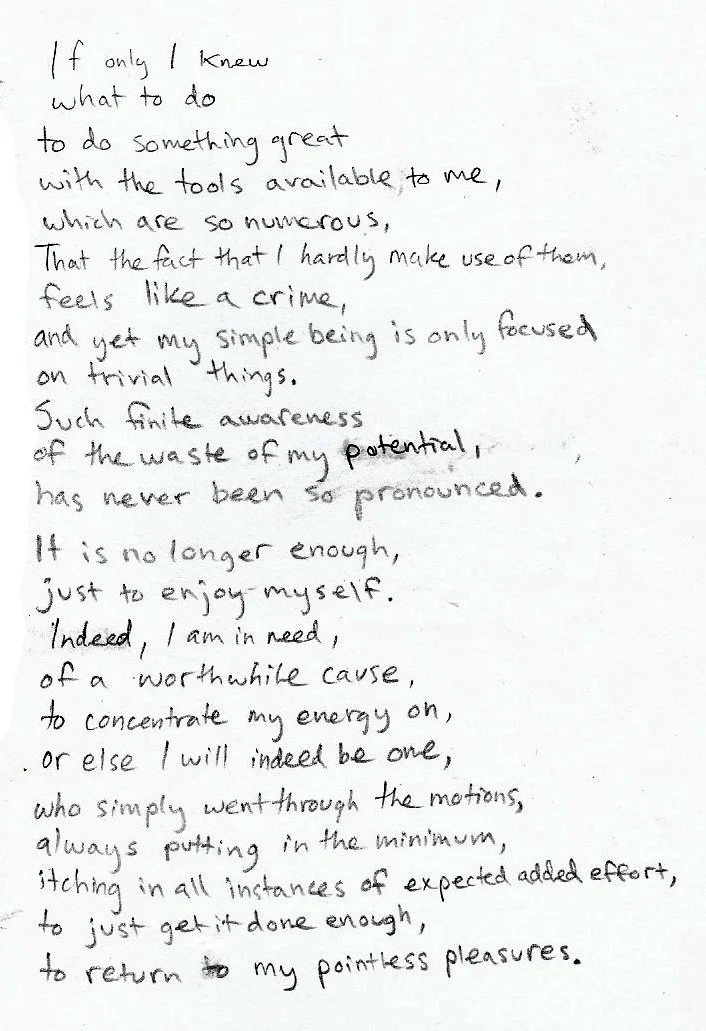 If only I knew
what to do
to do something great
with the tools available to me,
which are so numerous,
That the fact that I hardly make use of them,
feels like a crime,
and yet my simple being is only focused
on trivial things.
Such finite awareness
of the waste of my potential,
has never been so pronounced.
It is no longer enough,
just to enjoy myself.
Indeed, I am in need,
of a worthwhile cause,
to concentrate my energy on,
or else I will indeed be one,
who simply went through the motions,
always putting in the minimum,
itching in all instances of expected added effort,
to just get it done enough,
to return to my pointless pleasures.